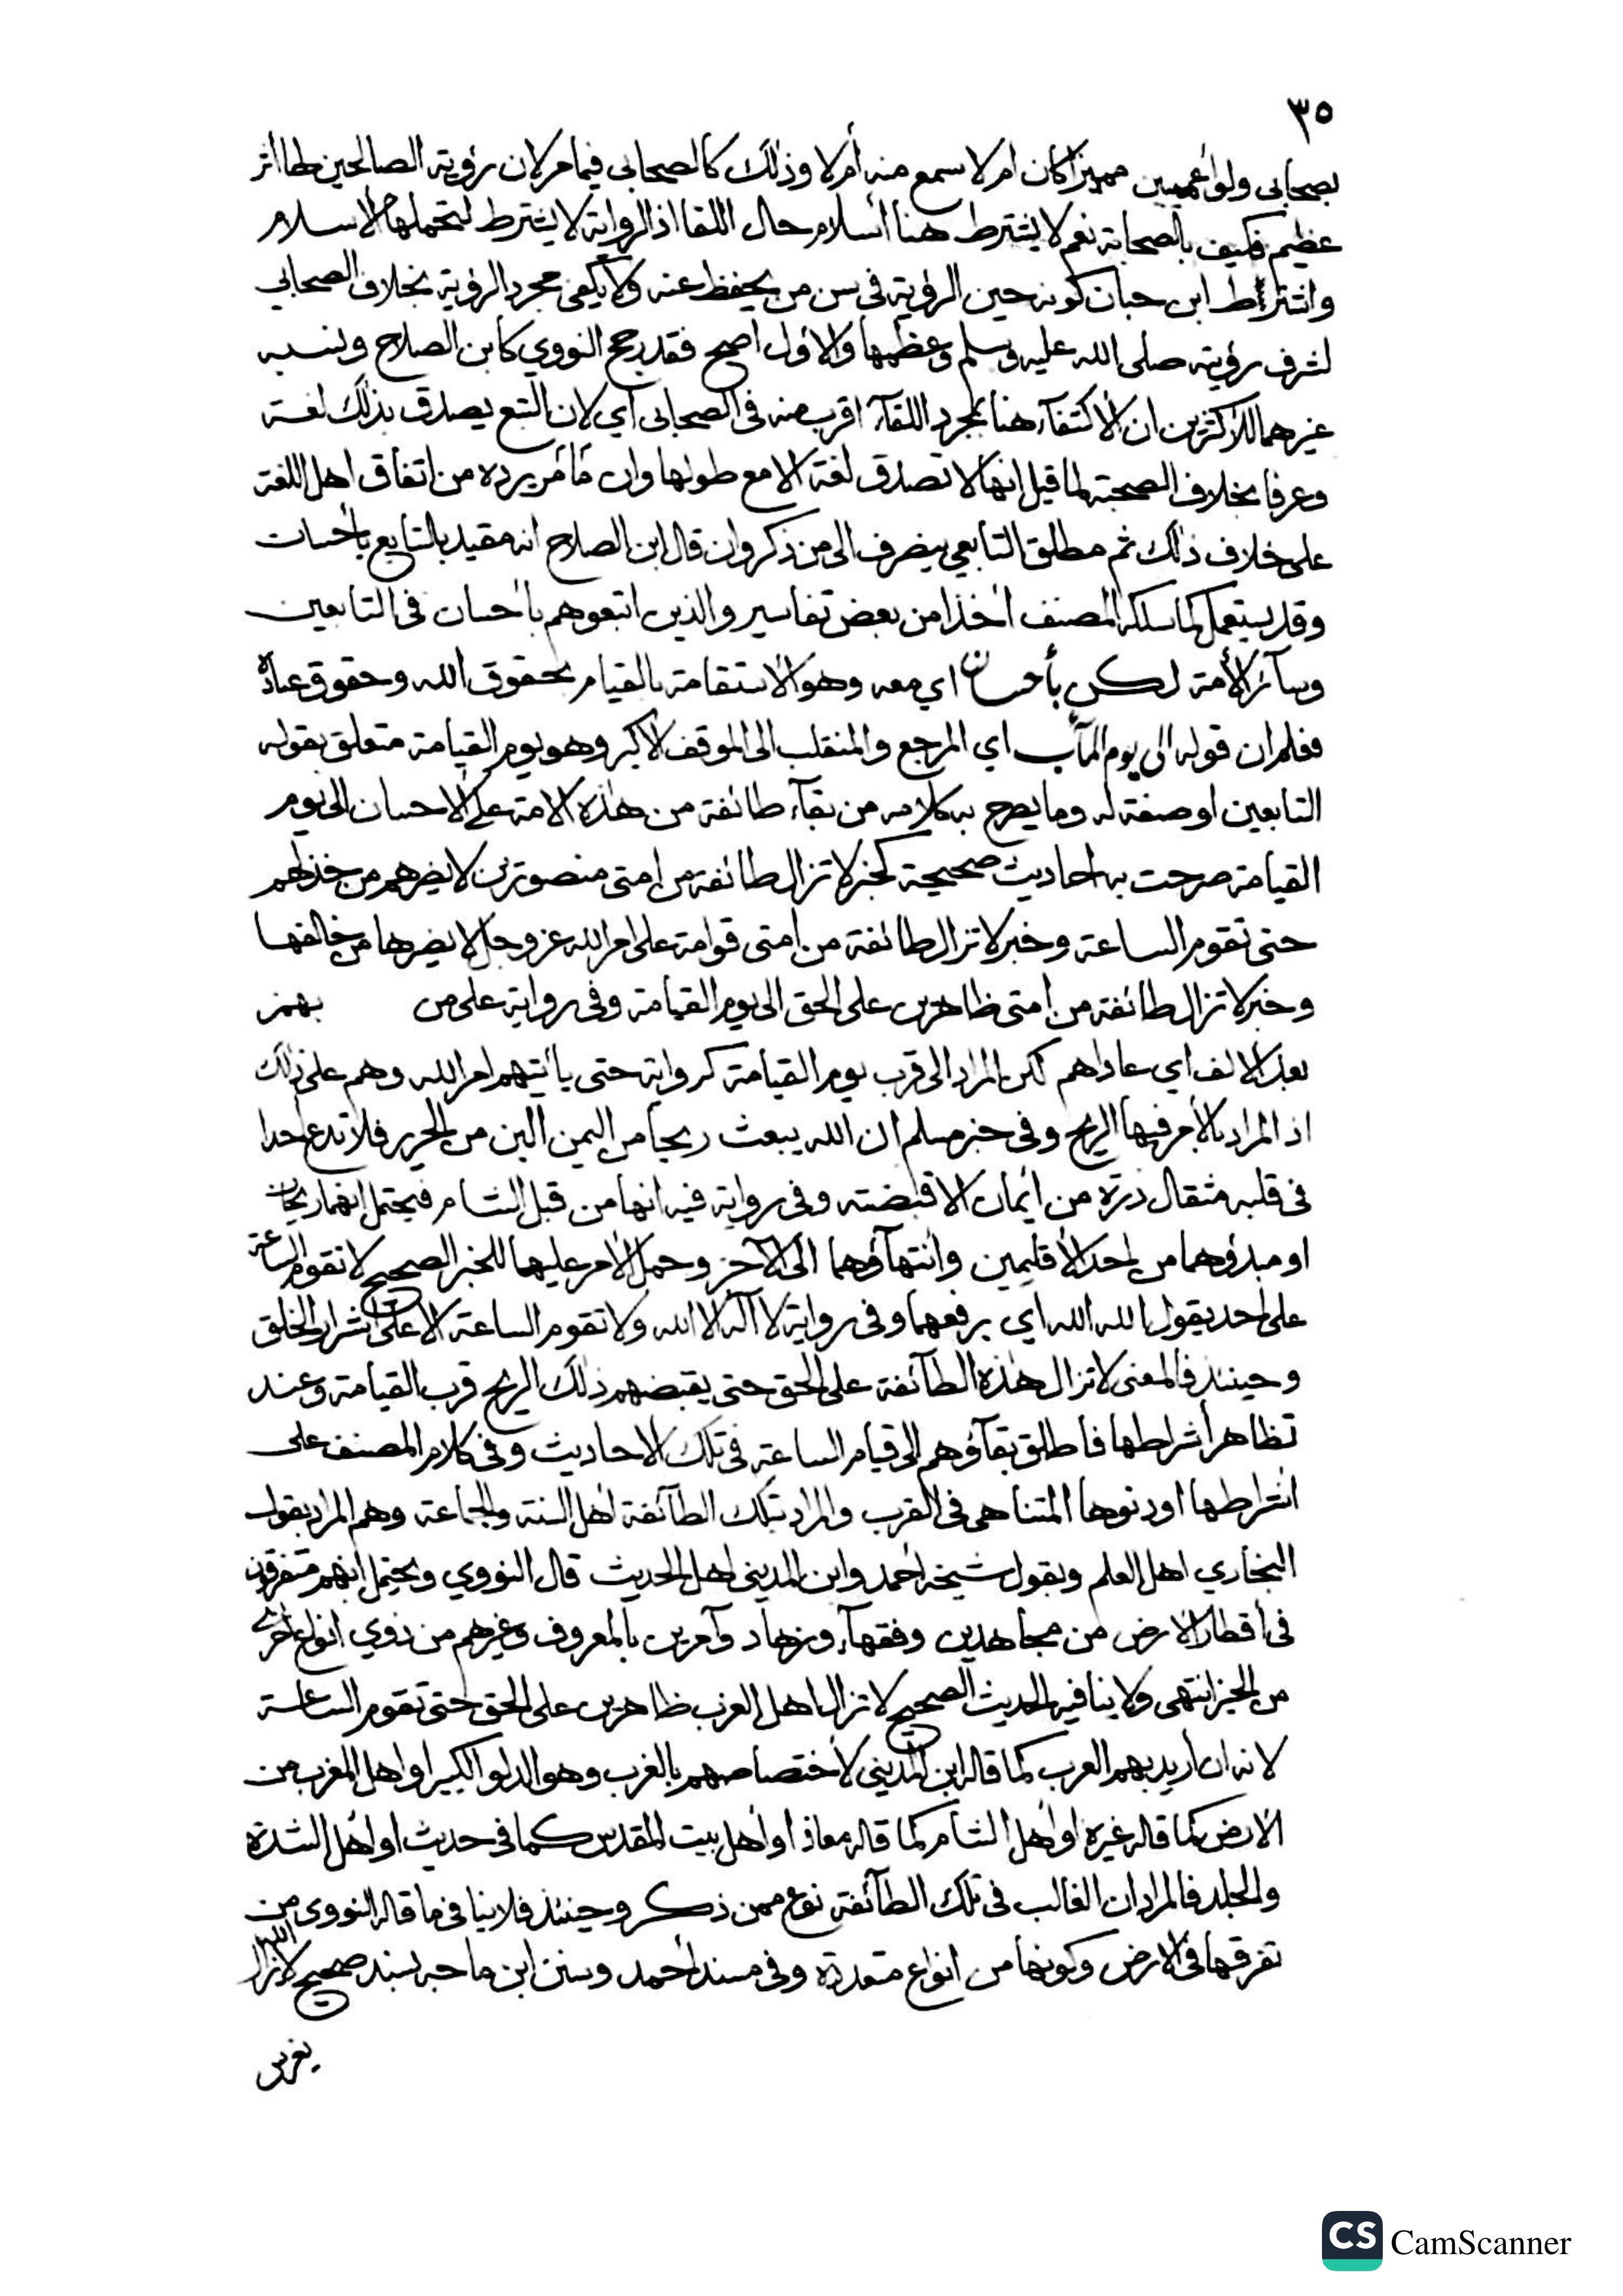 ٣٥
بصحابي ولو أعميين مميزا كان ام لا سمع منه أم لا وذلك كالصحابي فيما مر لان رؤية الصالحين لها اثر
عظيم فكيف بالصحابة نعم لا يشترط هنا اسلام حال اللقا اذ الرواية لا يشترط لتحملها الاسلام
واشتراط ابن حبان كونه حين الرؤية في سن من يحفظ عنه ولا يكفي مجرد الرؤية بخلاف الصحابي
لشرف رؤيته صلى الله عليه وسلم وعظمها والاول اصح فقد رجح النووي كابن الصلاح ونسبه
غيرهما للاكثرين ان الاكتفآء هنا بمجرد اللقآء اقرب منه في الصحابي اي لان التبع يصدق بذلك لغة
وعرفا بخلاف الصحبة لما قيل انها لا تصدق لغة الا مع طولها وان مر ما يرده من اتفاق اهل اللغة
على خلاف ذلك ثم مطلق التابعي ينصرف الى من ذكر وان قال ابن الصلاح انه مقيد بالتابع بأحسان
وقد يستعمل كما سلكه المصنف اخذا من بعض تفاسير والذين اتبعوهم بأحسان في التابعين
وسآئر الأمة لكن بأحسان اي معه وهو الاستقامة بالقيام بحقوق الله وحقوق عباده
فعلم ان قوله الى يوم المآب اي المرجع والمنقلب الى الموقف الاكبر وهو يوم القيامة متعلق بقوله
التابعين او صفة له وما يصرح به كلامه من بقآء طائفة من هذه الامة على الاحسان الى يوم
القيامة صرحت به احاديث صحيحة كخبر لا تزال طائفة من امتي منصورين لا يضرهم من خذلهم
حتى تقوم الساعة وخبر لا تزال طائفة من امتي قوامة على امر الله عز وجل لا يضرها من خالفها
وخبر لا تزال طائفة من امتي ظاهرين على الحق الى يوم القيامة وفي رواية على من بهمز
بعد الالف اي عاداهم لكن المراد الى قرب يوم القيامة كرواية حتى يأتيهم امر الله وهم على ذلك
اذ المراد بالأمر فيها الريح وفي خبر مسلم ان الله يبعث ريحا من اليمن ألين من الحرير فلا تدع احدا
في قلبه مثقال ذرة من ايمان الا قبضته وفي رواية فيه انها من قبل الشام فيحتمل انهما ريحان
او مبدؤهما من احد الأقليمين وانتهآؤهما الى الآخر وحمل الأمر عليها للخبر الصحيح لا تقوم الساعة
على احد يقول الله الله اي برفعهما وفي رواية لا آله الا الله ولا تقوم الساعة الا على شرار الخلق
وحينئذ فالمعنى لا تزال هذه الطآئفة على الحق حتى يقبضهم ذلك الريح قرب القيامة وعند
تظاهر أشراطها فأطلق بقآؤهم الى قيام الساعة في تلك الاحاديث وفي كلام المصنف على
اشراطها او دنوها المتناهي في القرب والمراد بتلك الطآئفة اهل السنة والجماعة وهم المراد بقول
البخاري اهل العلم وبقول شيخه احمد وابن المديني اهل الحديث قال النووي ويحتمل انهم متفرقون
في أقطار الارض من مجاهدين وفقهآء وزهاد وآمرين بالمعروف وغيرهم من ذوي انواع اخرى
من الخير انتهى ولا ينافيه الحديث الصحيح لا تزال اهل الغرب ظاهرين على الحق حتى تقوم الساعة
لانه ان اريد بهم العرب كما قاله ابن المديني لأختصاصهم بالغرب وهو الدلو الكبير او اهل المغرب من
الارض كما قاله غيره او اهل الشام كما قاله معاذ او اهل بيت المقدس كما في حديث او اهل الشدة
والجلد فالمراد ان الغالب في تلك الطآئفة نوع ممن ذكر وحينئذ فلا ينافي ما قاله النووي من
تفرقها في الارض وكونها من انواع متعددة وفي مسند احمد وسنن ابن ماجه بسند صحيح لا يزال الله
يغرس
CS CamScanner